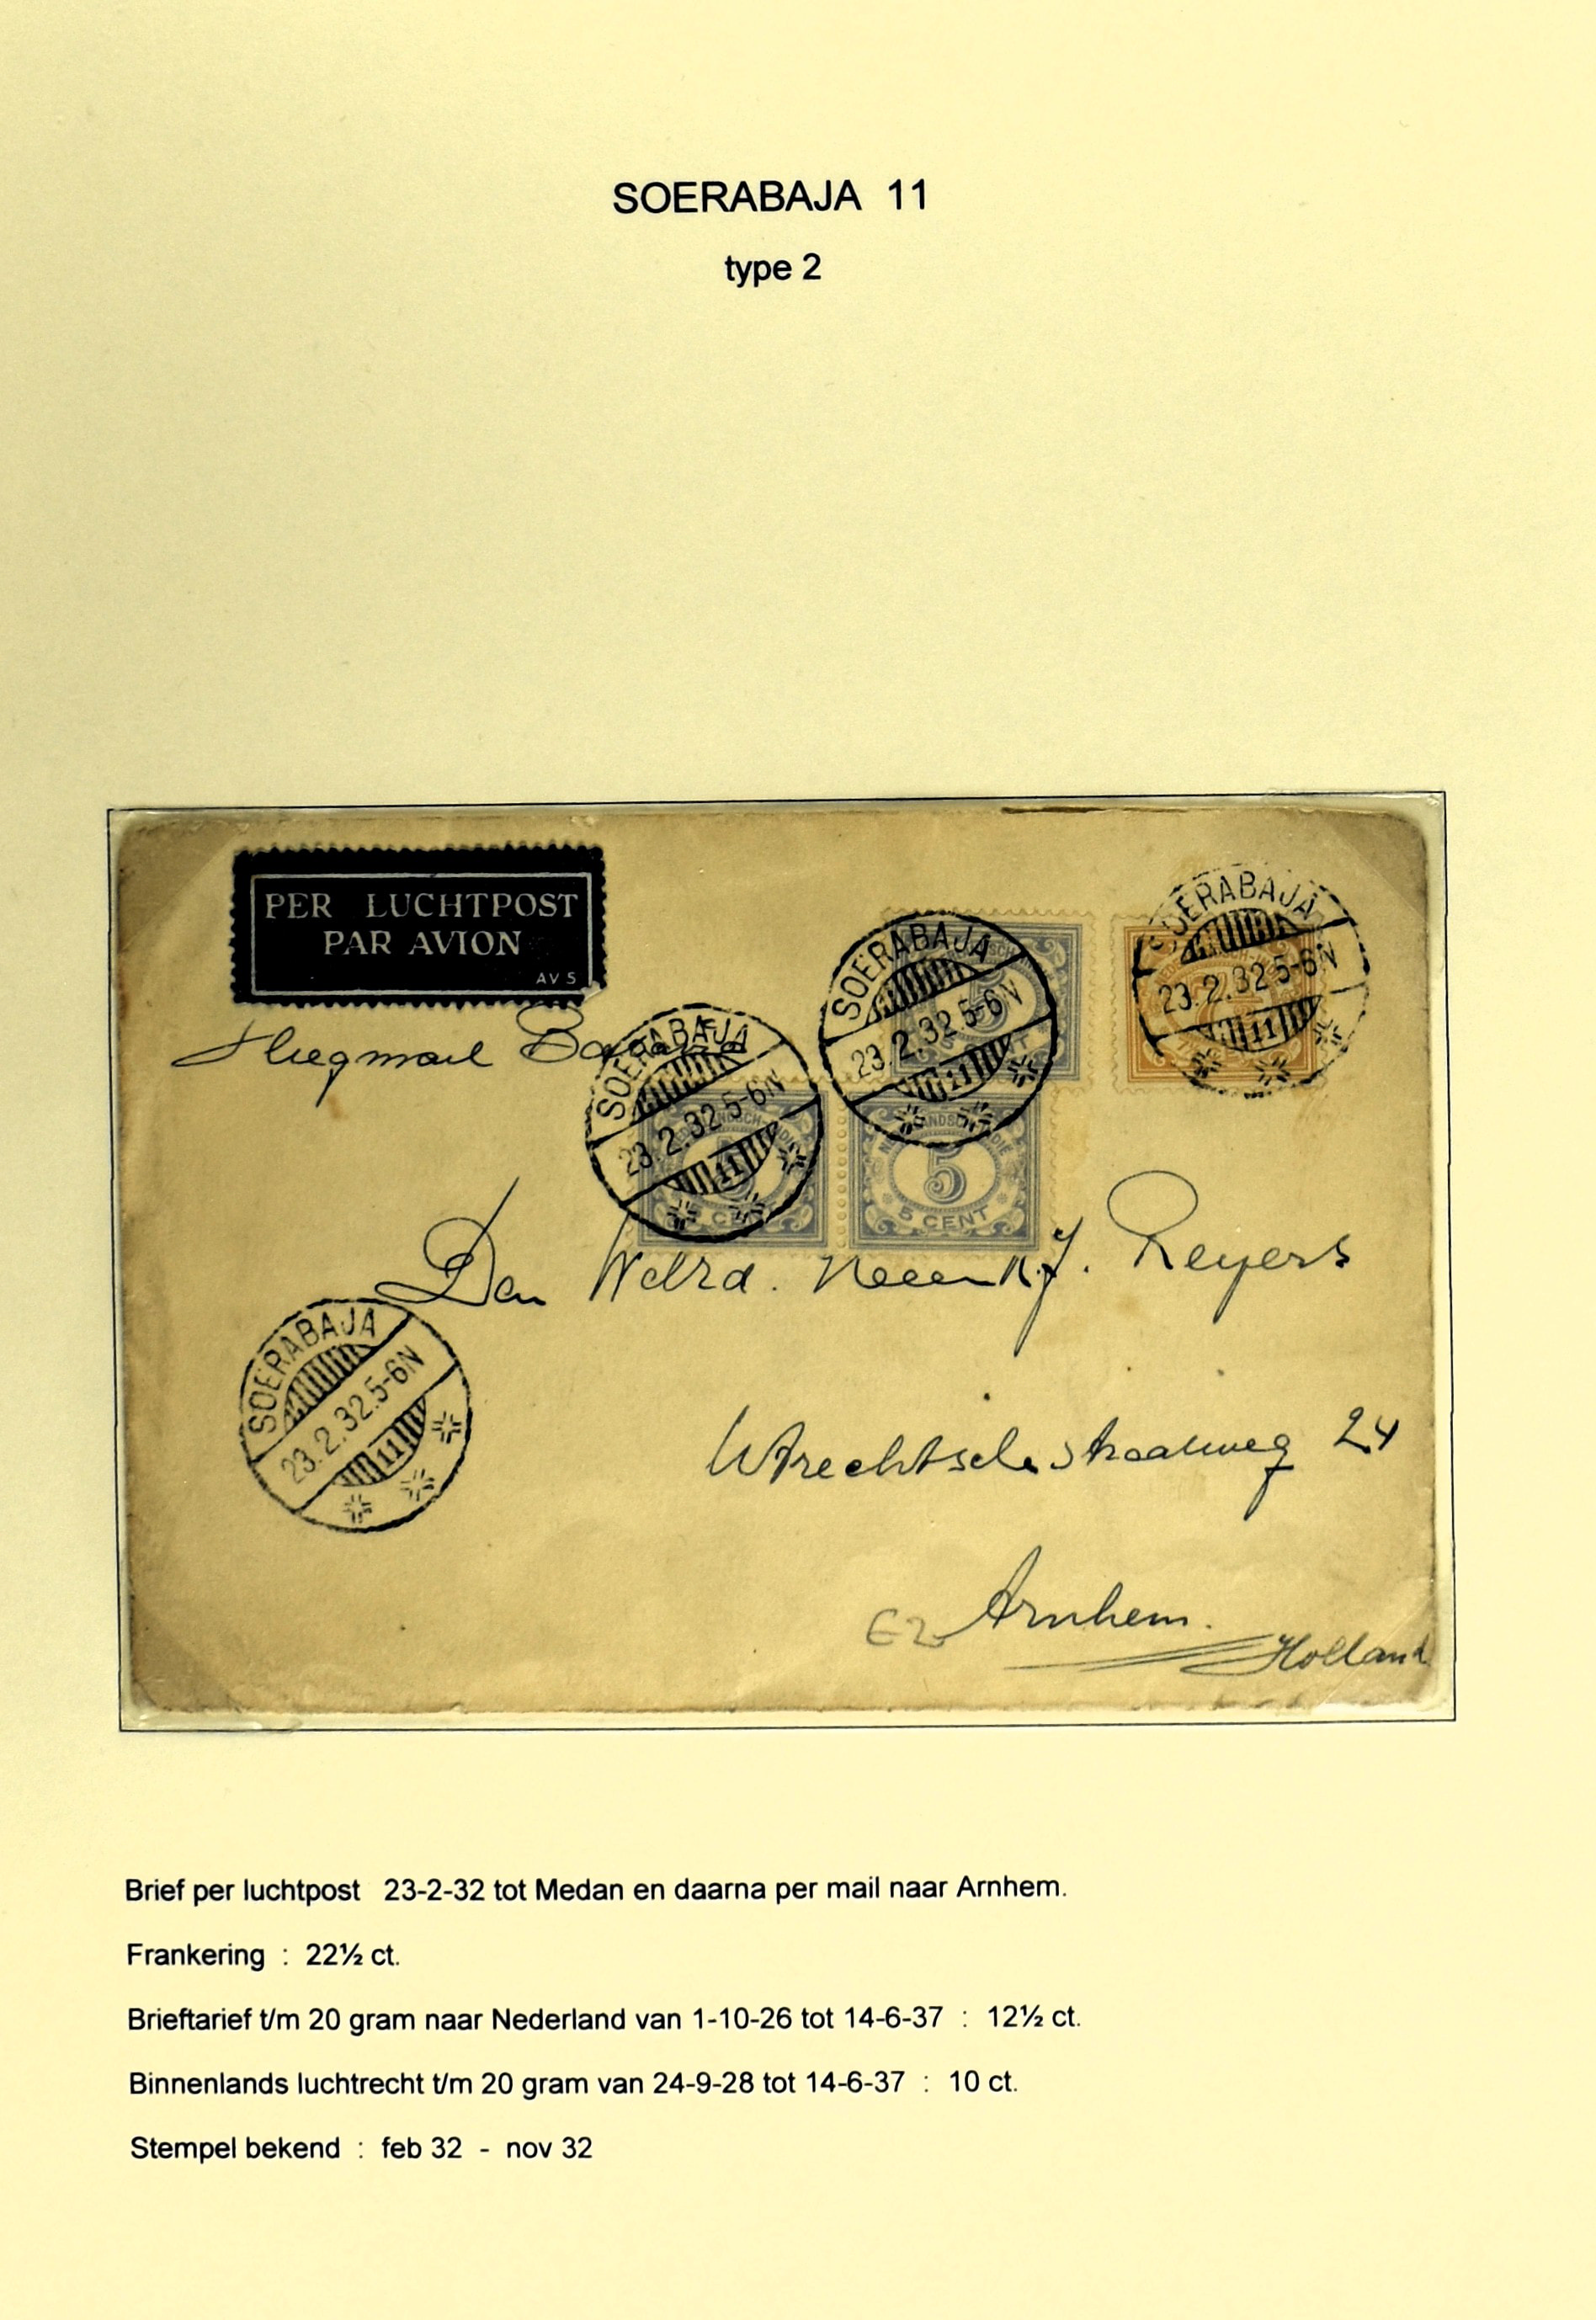 SOERABAJA 11
type 2
PER LUCHTPOST
PAR AVION
AV 5
Vliegmail
SOERABAJA
23.2.32.5-6N
11
SOERABAJA
23.2.32 5-6N
11
SOERABAJA
23.2.32 5-6N
11
5
5 CENT
Den WelEd. Heer J. Reyers
SOERABAJA
23.2.32.5-6N
11
Utrechtschestraatweg 24
Arnhem.
Holland
Brief per luchtpost 23-2-32 tot Medan en daarna per mail naar Arnhem.
Frankering : 22½ ct.
Brieftarief t/m 20 gram naar Nederland van 1-10-26 tot 14-6-37 : 12½ ct.
Binnenlands luchtrecht t/m 20 gram van 24-9-28 tot 14-6-37 : 10 ct.
Stempel bekend : feb 32 - nov 32